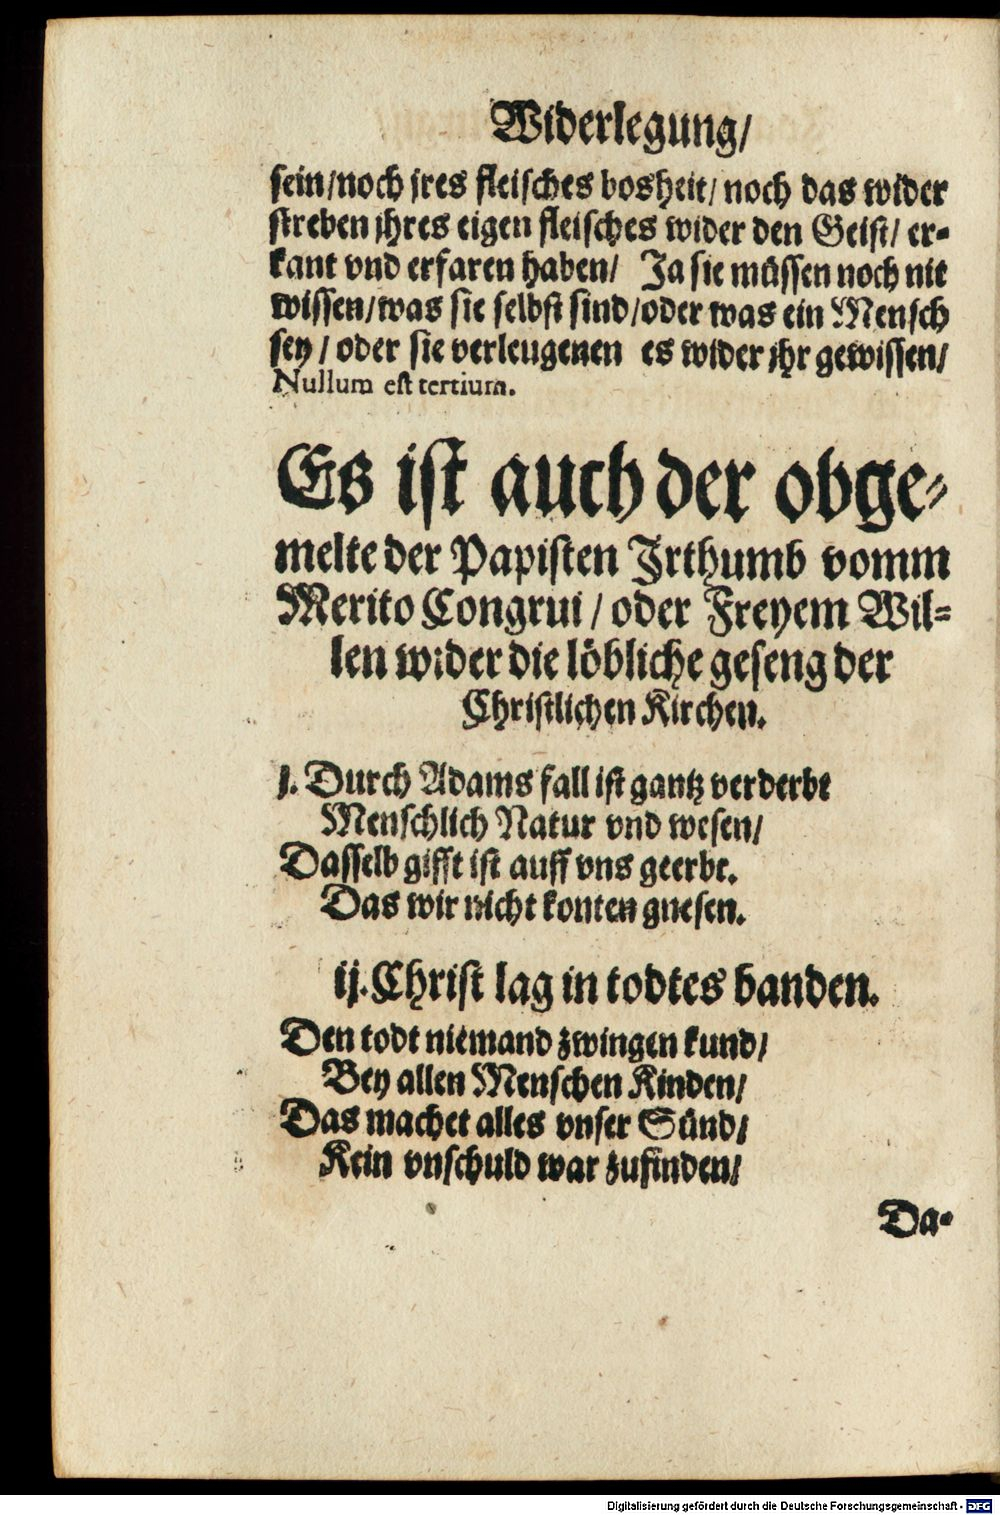 Widerlegung/
sein/noch jres fleisches bosheit/ noch das wider
streben jhres eigen fleisches wider den Geist/ er-
kant vnd erfaren haben/ Ja sie müssen noch nie
wissen/was sie selbst sind/oder was ein Mensch
sey/ oder sie verleugenen es wider jhr gewissen/
Nullum est tertium.
Es ist auch der obge-
melte der Papisten Irthumb vomm
Merito Congrui/ oder Freyem Wil-
len wider die löbliche geseng der
Christlichen Kirchen.
j. Durch Adams fall ist gantz verderbt
Menschlich Natur vnd wesen/
Dasselb gifft ist auff vns geerbt.
Das wir nicht konten gnesen.
ij. Christ lag in todtes banden.
Den todt niemand zwingen kund/
Bey allen Menschen Kinden/
Das machet alles vnser Sünd/
Kein vnschuld war zufinden/
Da-
Digitalisierung gefördert durch die Deutsche Forschungsgemeinschaft - DFG